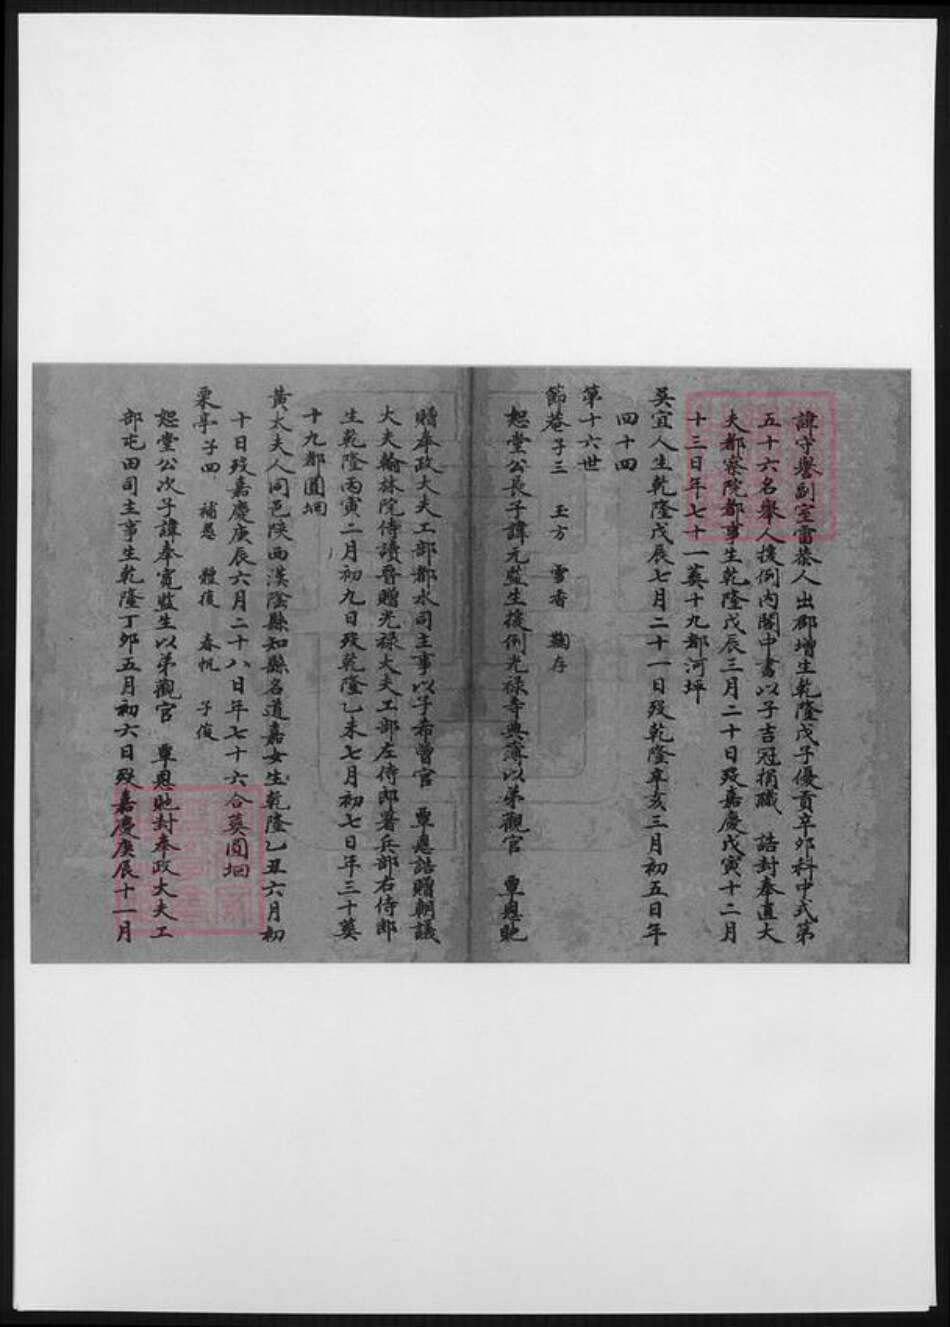 諱守譽副室雷恭人出郡增生乾隆戊子優貢辛卯科中式第
五十六名舉人援例內閣中書以子吉冠捐職　誥封奉直大
夫都察院都事生乾隆戊辰三月二十日歿嘉慶戊寅十二月
十三日年七十一葬十九都河坪
吳宜人生乾隆戊辰七月二十一日歿乾隆辛亥三月初五日年
四十四
第十六世
節菴子三　玉方　雪香　鞠存
恕堂公長子諱元監生援例光祿寺典簿以弟觀官　覃恩貤
贈奉政大夫工部都水司主事以子希曾官　覃恩誥贈朝議
大夫翰林院侍讀晉贈光祿大夫工部左侍郎署兵部右侍郎
生乾隆丙寅二月初九日歿乾隆乙未七月初七日年三十葬
十九都圓堌
黃太夫人同邑陝西漢陰縣知縣名道嘉女生乾隆乙丑六月初
十日歿嘉慶庚辰六月二十八日年七十六合葬圓堌
栗亭子四　補愚　雅後　春帆　子俊
恕堂公次子諱奉寬監生以弟觀官　覃恩貤封奉政大夫工
部屯田司主事生乾隆丁卯五月初六日歿嘉慶庚辰十一月